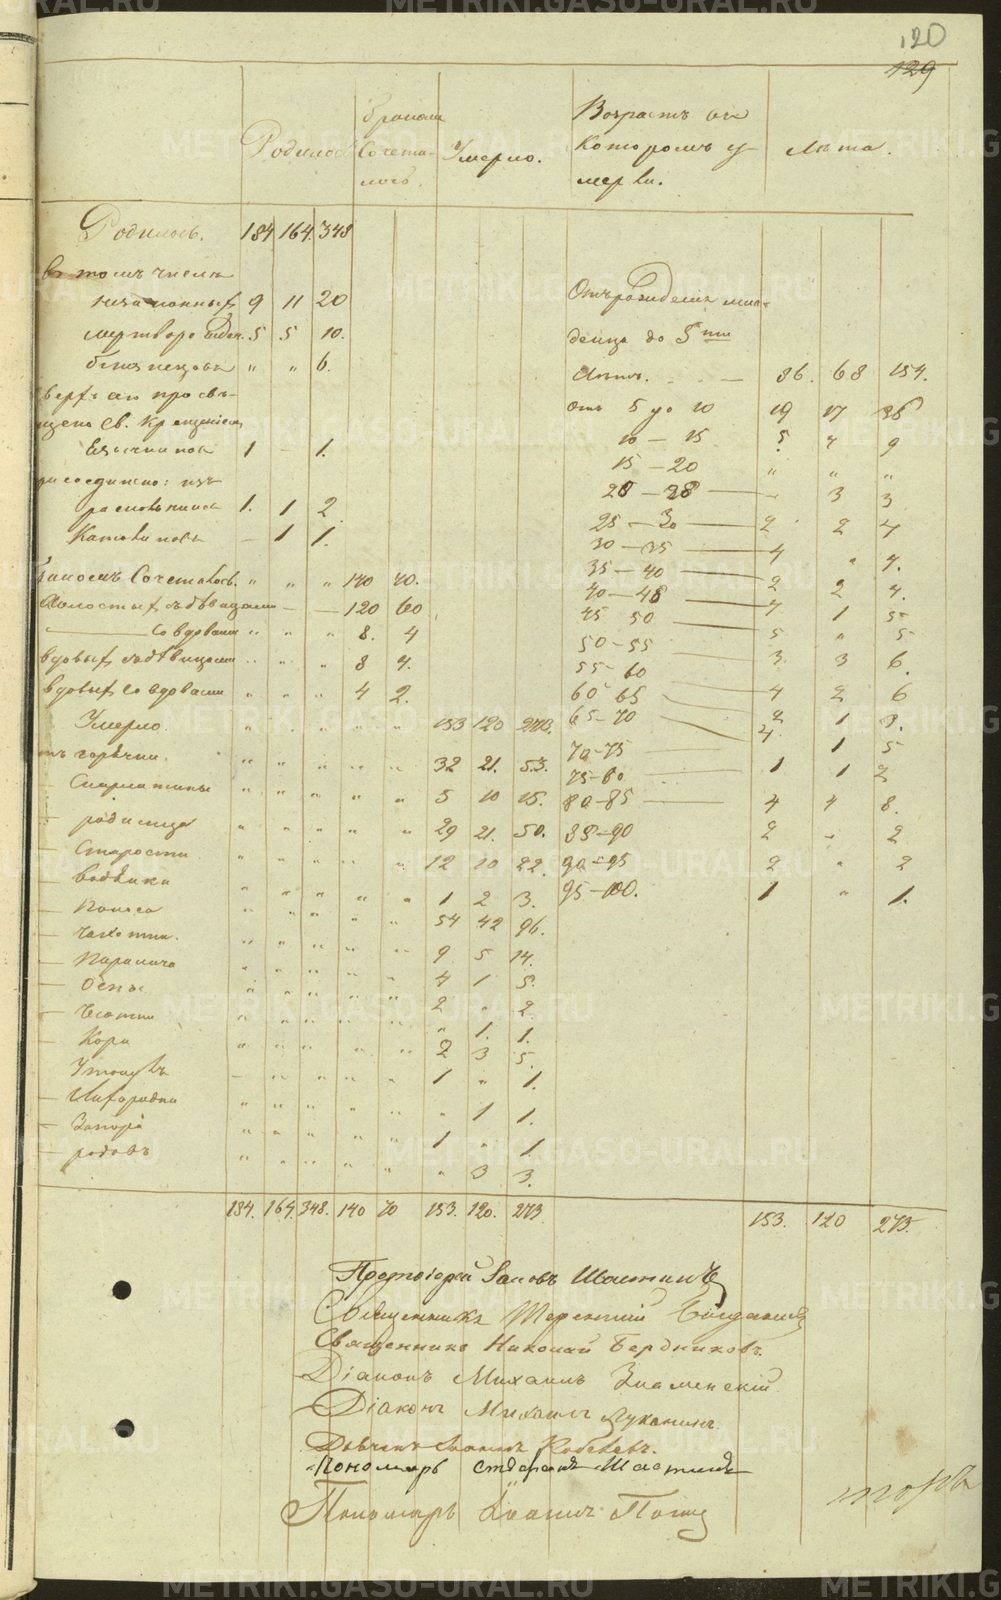 120
129
Родилось
бракомъ
Сочета-
лось.
Умерло.
Возрастъ въ
Которомъ у-
мерли.
Лѣта.
Родилось. 184 164 348
въ томъ числѣ
незаконныхъ 9 11 20
мертворожден. 5 5 10.
близнецовъ " " 6.
сверхъ сего просвѣ-
щено Св. Крещеніемъ
Язычниковъ 1 - 1.
присоединено: изъ
раскольниковъ 1. 1 2
Католиковъ - 1 1.
Бракомъ Сочеталось " " " 140 70.
Холостыхъ съ дѣвицами - - 120 60
Со вдовами " " " 8. 4
вдовыхъ съ дѣвицами " " " 8 4.
вдовыхъ со вдовами " " " 4 2.
Умерло. " " " " " 153 120 273.
отъ горячки. " " " " " 32 21. 53.
Скарлатины " " " " " 5 10 15.
— родимца " " " " " 29 21. 50.
— Старости " " " " " 12 10 22.
— водянки " " " " " 1 2 3.
— Поноса " " " " " 54 42 96.
— Чахотки. " " " " " 9 5 14.
— Паралича " " " " " 4 1 5.
— Оспы " " " " " 2 " 2.
— " " " " " " 1. 1.
— Кори " " " " " 2 3 5.
— - " " " " 1 " 1.
— " " " " " " 1 1.
— Запора " " " " " 1 " 1.
— родовъ " " " " " " 3 3.
184. 164. 348. 140 70 153. 120. 273
Отъ рожденія мла-
денца до 5ти
Лѣтъ. - - — 86. 68 154.
отъ 5 до 10 19 17 36
10 — 15 5 4 9
15 — 20 " " "
20 — 25 - 3 3
25 — 30 2 2 4
30 — 35 4 " 4.
35 — 40 2 2 4.
40 — 45 4 1 5
45 50 5 " 5
50 - 55 3. 3 6.
55 - 60 4 2 6
60 - 65 2 1 3.
65 - 70 4. 1 5
70 - 75 1 1 2
75 - 80
80 - 85 4 4 8.
85 - 90 2 - 2
90 - 95 2 " 2
95 - 100. 1 " 1.
153. 120 273.
Протоіерей Іаковъ Шастинъ
Священникъ Терентій
Священникъ Николай Бердниковъ.
Діаконъ Михаилъ Знаменскій
Діаконъ Михаилъ Луканинъ.
Дьячекъ
Пономарь Стефанъ Шастинъ
Пономарь Іоаннъ Поповъ
METRIKI.GASO-URAL.RU